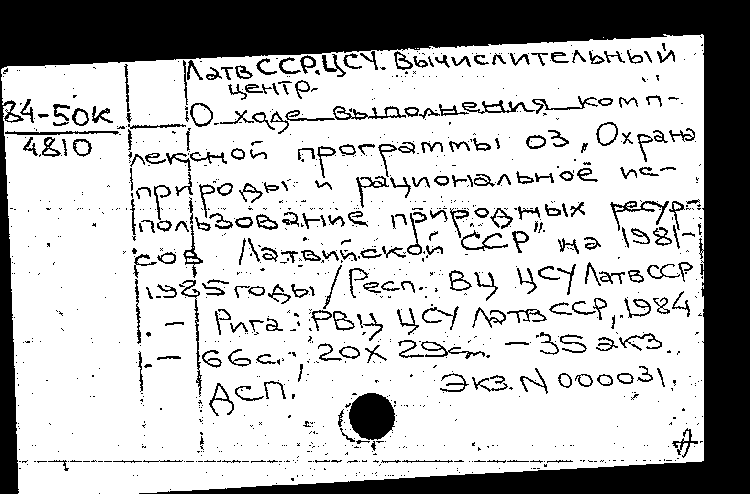 Латв ССР. ЦСУ. Вычислительный
центр.
84-50к
4810
О ходе выполнения комп-
лексной программы 03 „Охрана
природы и рациональное ис-
пользование природных ресур-
сов Латвийской ССР" на 1981-
1985 годы / Респ. ВЦ ЦСУ Латв ССР
. - Рига: РВЦ ЦСУ Латв ССР, 1984
. - 66 с.; 20 X 29 cm. - 35 экз.
ДСП. Экз. N 000031.